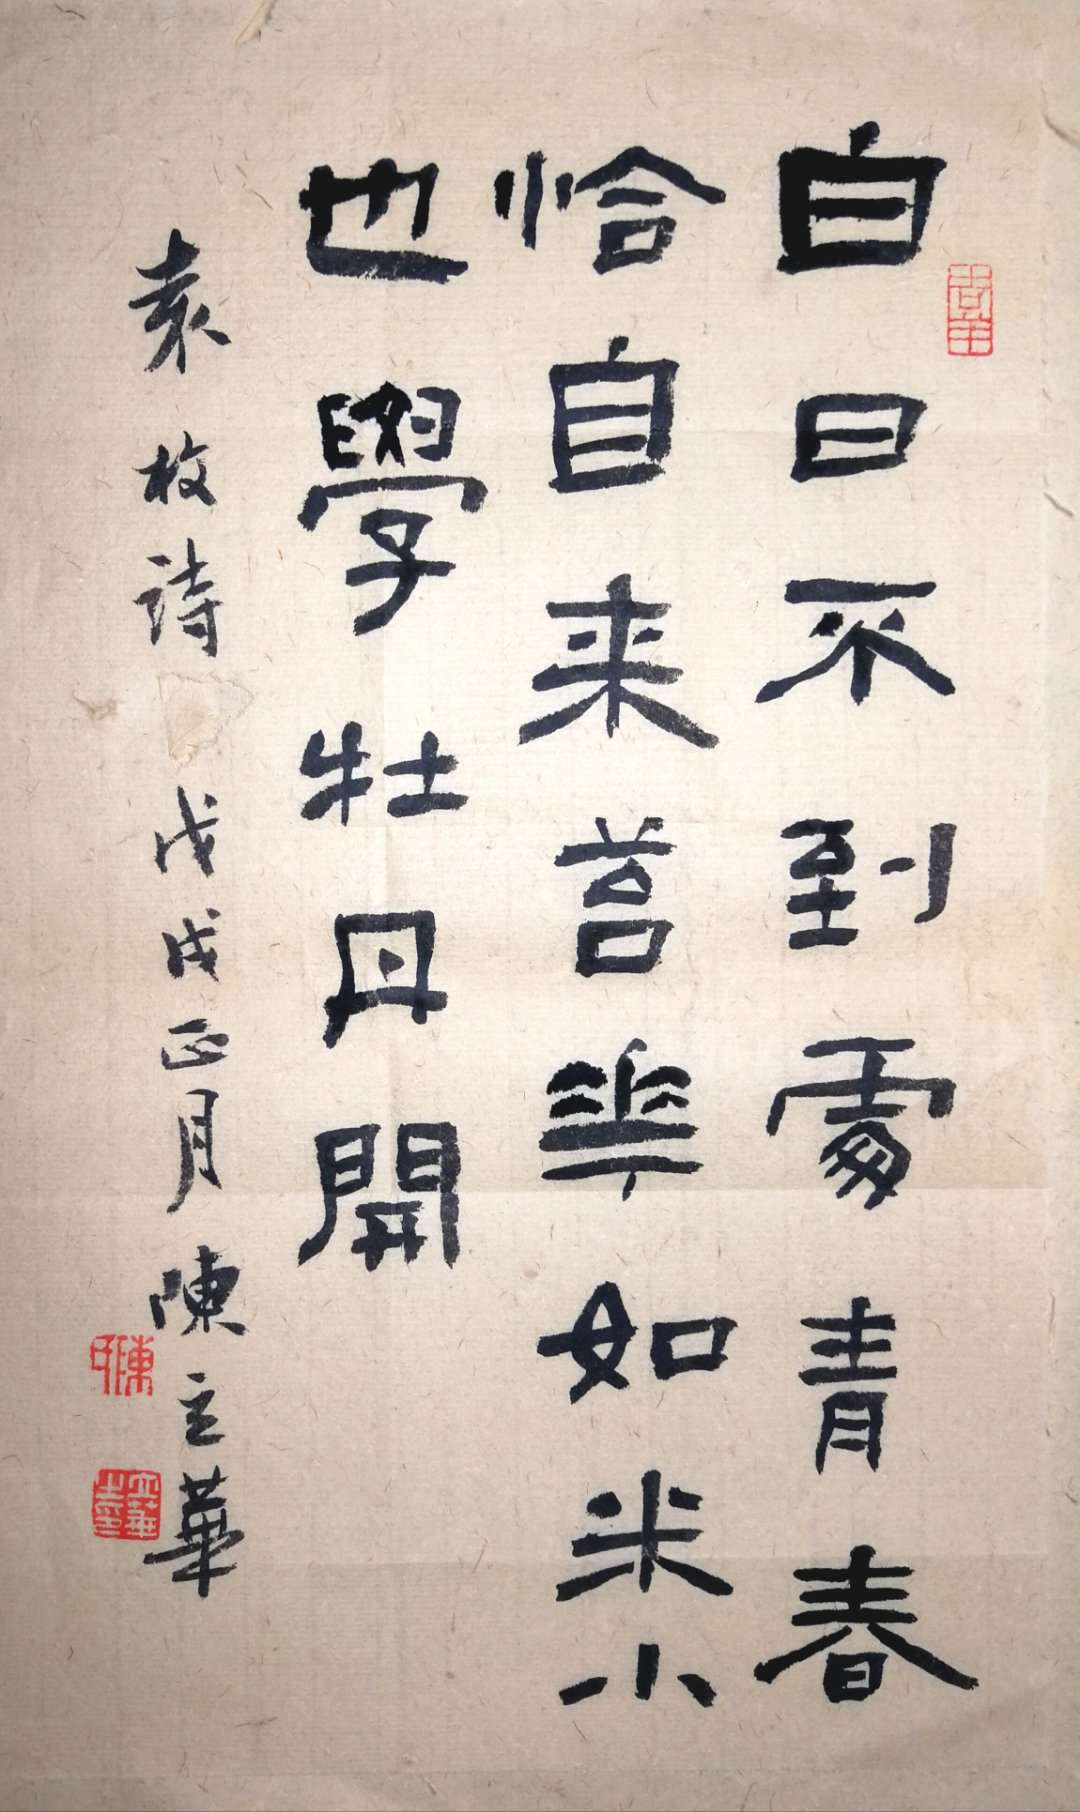 白日不到處青春
恰自来苔華如米小
也學牡丹開
袁枚詩 戊戌正月 陳立華
陳
立華之印